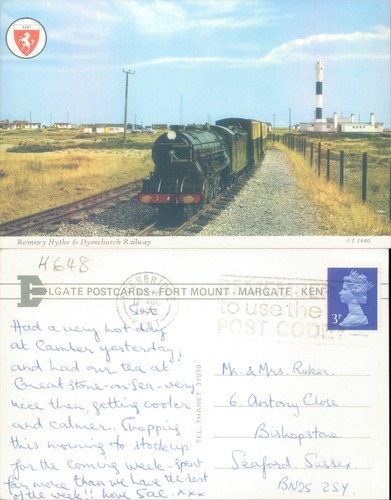 KENT
Romney Hythe & Dymchurch Railway
ET 3446
4648
ELGATE POSTCARDS - FORT MOUNT - MARGATE - KENT
to use the
POST CODE
3P
Sat
Had a very hot day
at Camber yesterday,
and had our tea at
Greatstone-on-Sea - very
nice then, getting cooler
and calmer. Shopping
this morning to stock up
for the coming week - spent
far more than we have the rest
of the week!! love Sal. xxx
TEL. THANET 31579
Mr. & Mrs. Roker.
6. Antony Close
Bishopstone
Seaford. Sussex
BN25 2SY.